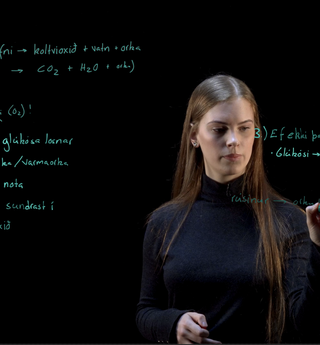 fni → koltvíoxíð + vatn + orka
→ CO₂ + H₂O + orka)
(O₂)!
glúkósa losnar
ka/varmaorka
nota
sundrast í
3) Ef ekki
· Glúkósi →